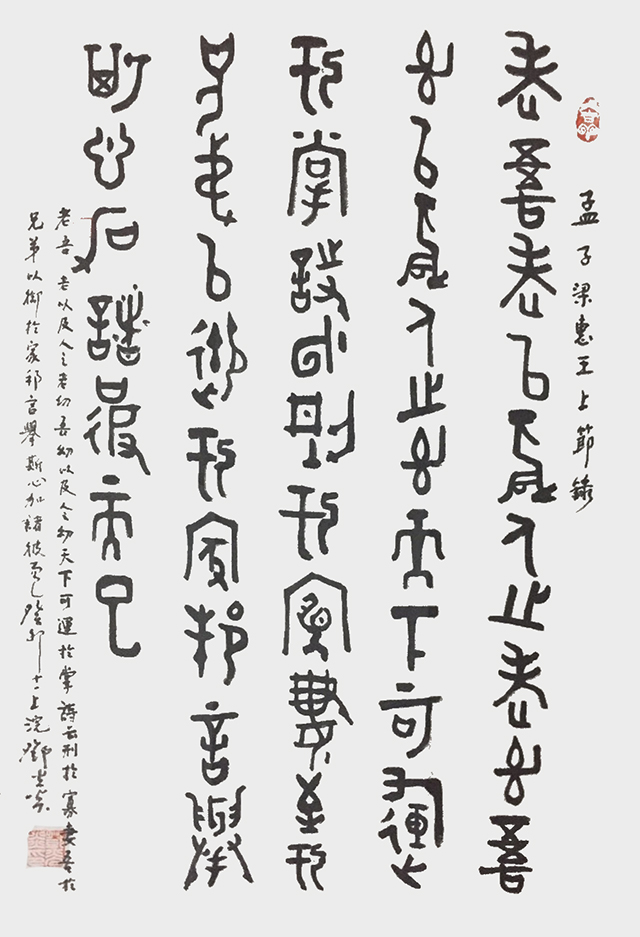 孟子梁惠王上節錄
老吾老以及人之老幼吾
幼以及人之幼天下可運
於掌詩云刑於寡妻至於
兄弟以御於家邦言舉
斯心加諸彼而已
老吾老以及人之老幼吾幼以及人之幼天下可運於掌詩云刑於寡妻至於
兄弟以御於家邦言舉斯心加諸彼而已癸卯十一上浣鄧